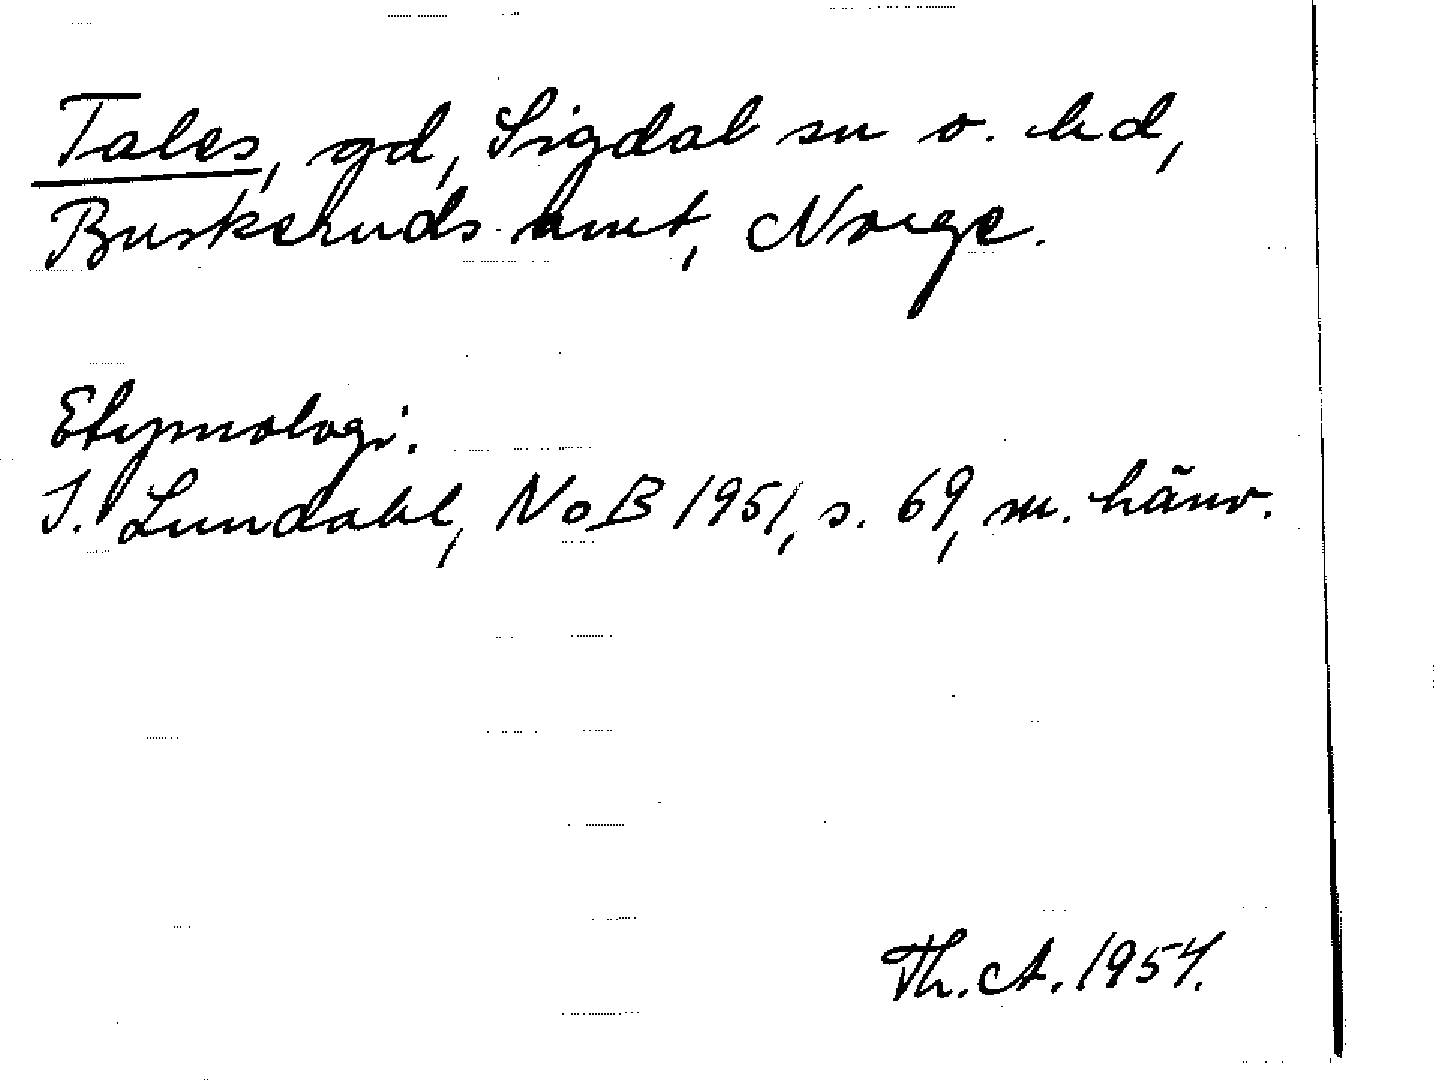 Tales, gd, Sigdal sn o. hd,
Buskeruds amt, Norge.
Etymologi.
I. Lundahl, NoB 1951, s. 69, m. hänv.
Th. A. 1954.